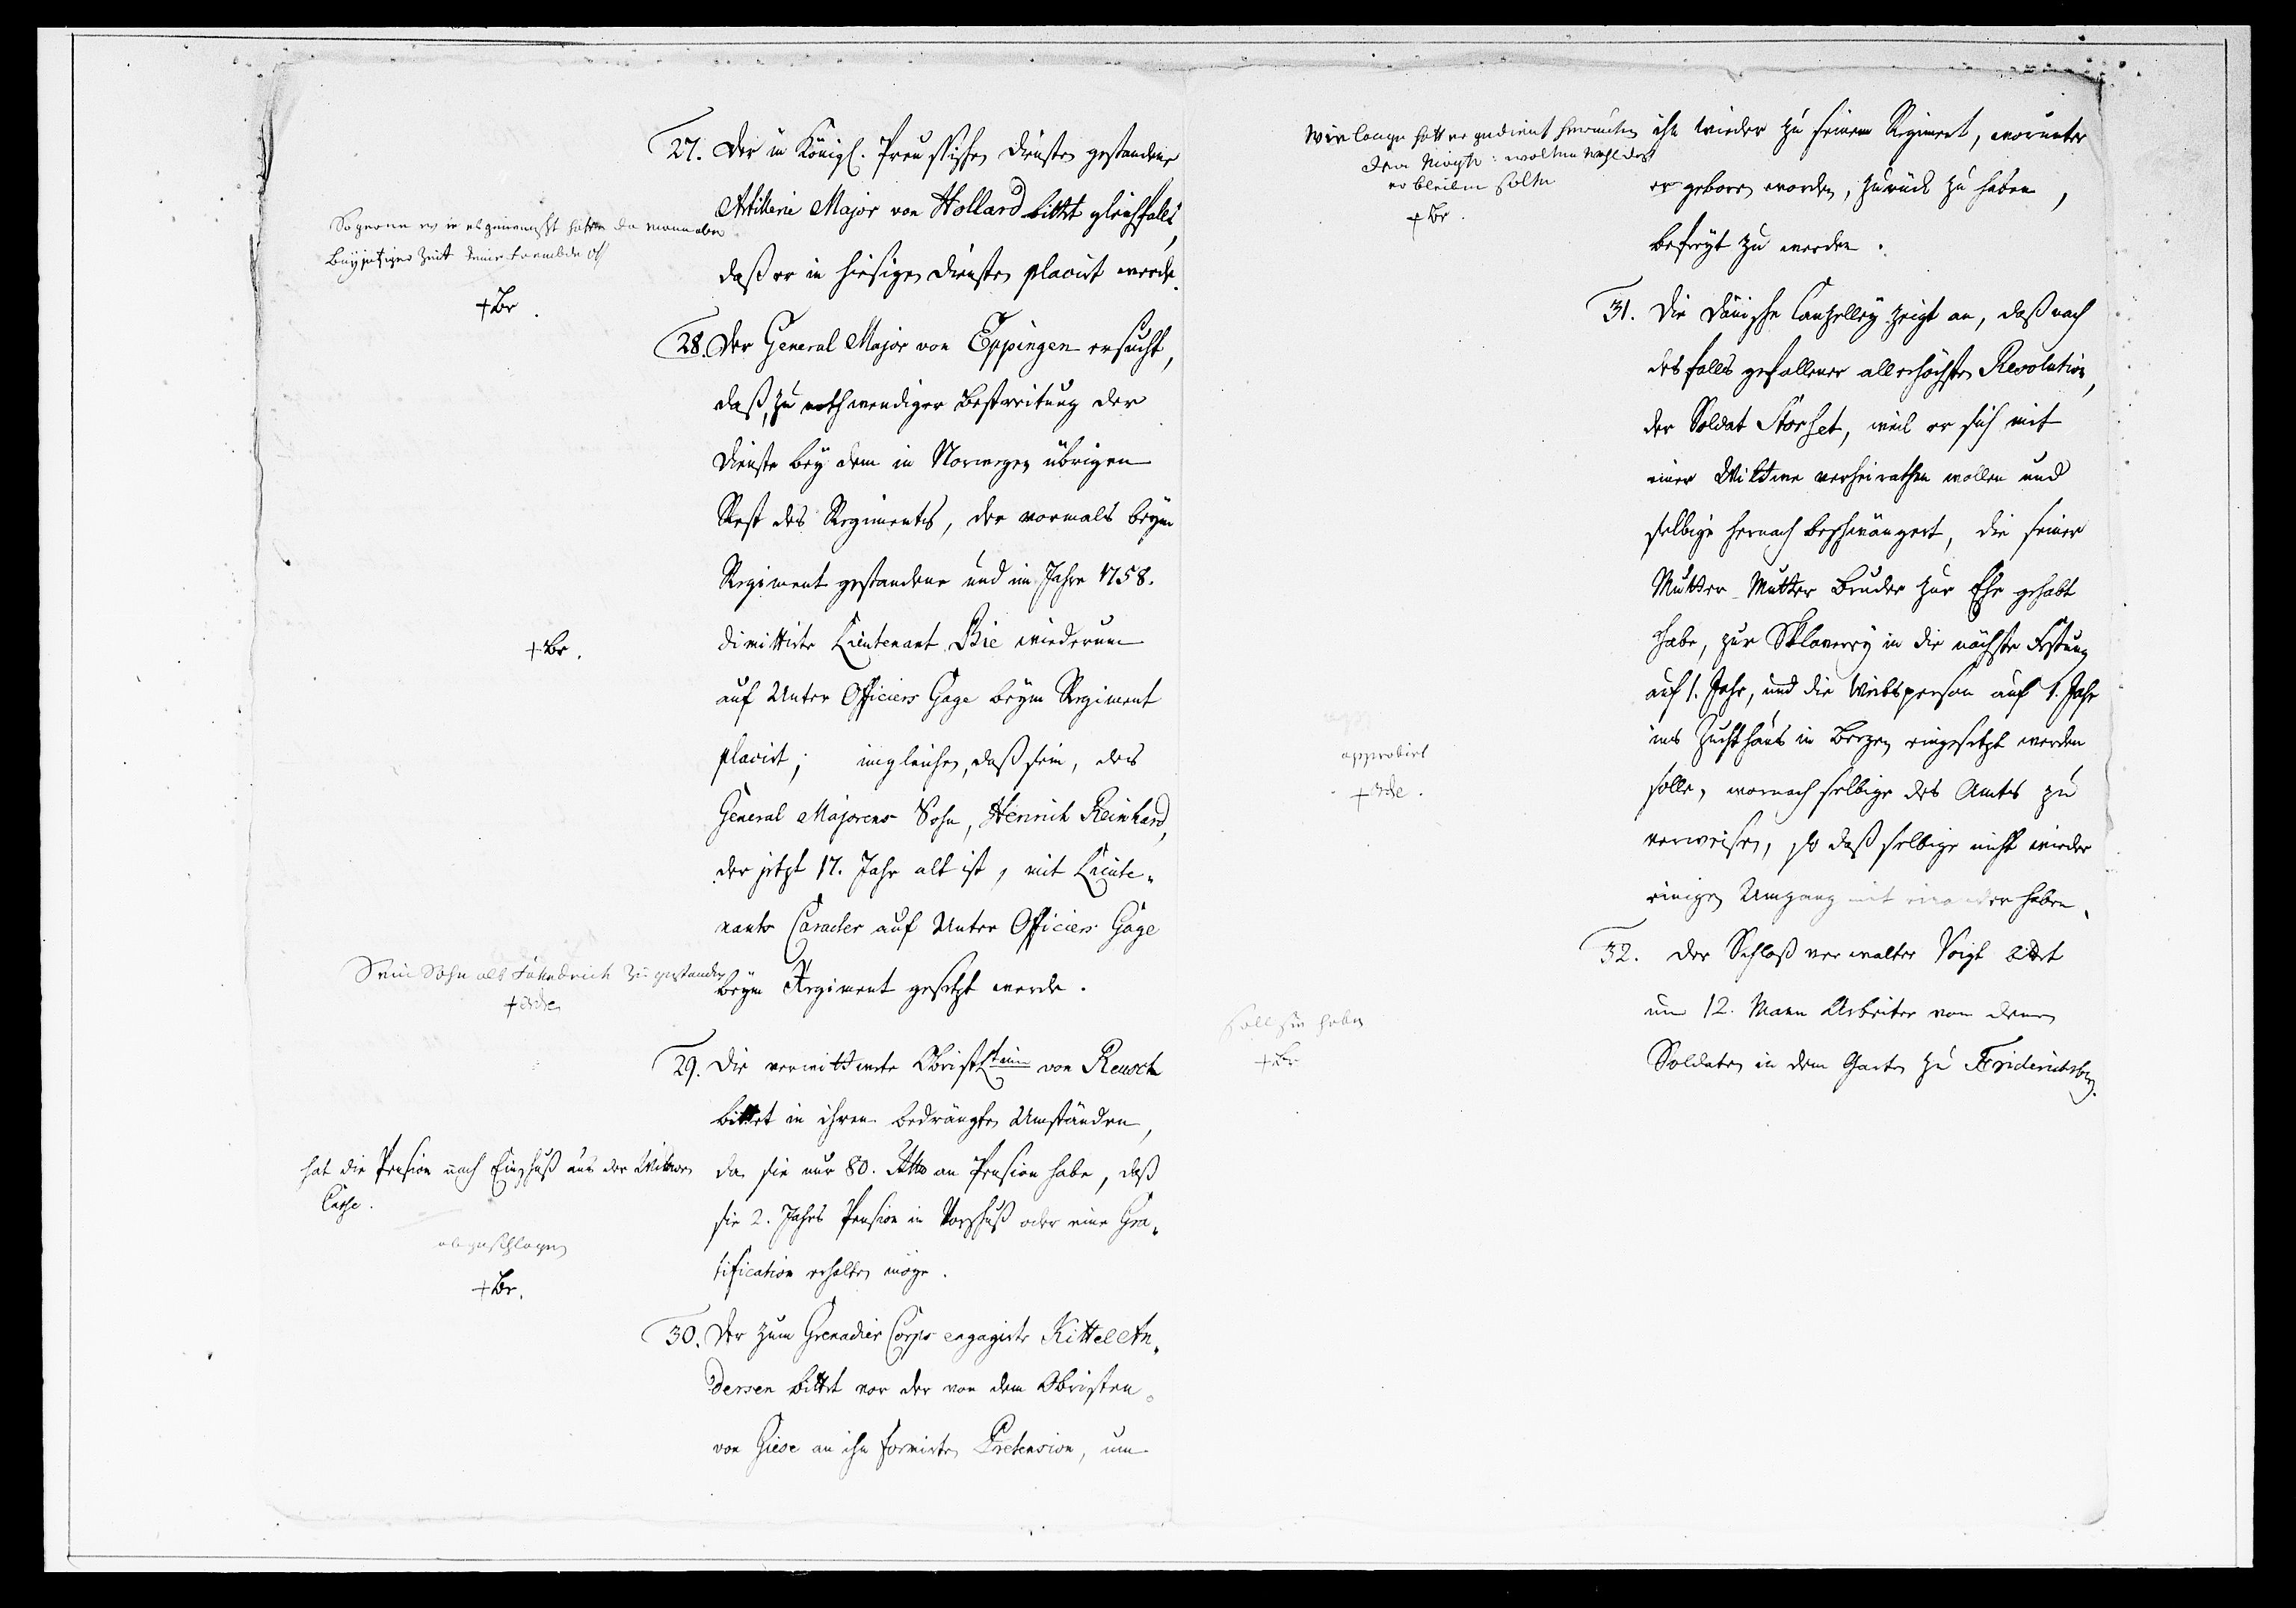 27. Der in Königl. Preussischen Diensten gestandene
Artillerie Major von Hollard bittet gleichfalls,
daß er in hiesigen Diensten placirt werde.
So gerne es gewünscht hätten da man aber
bey jetziger Zeit keine Frembde
+ Br.
28. Der General Major von Eppingen ersucht,
daß, zu nothwendiger Bestreitung der
Dienste bey dem in Norwegen übrigen
Rest des Regiments, der vormals beym
Regiment gestandene und im Jahre 1758.
dimittirte Lieutenant Bie wiederum
+ Br.
auf Unter Officiers Gage beym Regiment
placirt; imgleichen, daß sein, des
General Majorens Sohn, Henrich Reinhard,
der jetzt 17. Jahr alt ist, mit Lieute-
nants Caracter auf Unter Officiers Gage
beym Regiment gesetzt werde.
Sein Sohn als Fähndrich zu gestanden
+
29. Die verwittwete Obristltnin von Reusch
bittet in ihren bedrängten Umständen,
da sie nur 80. Rthlr an Pension habe, daß
sie 2. Jahrs Pension in Vorschuß oder eine Gra-
tification erhalten möge.
hat die Pension nach Einschuß aus der Witwen
Casse.
abgeschlagen
+ Br.
30. Der zum Grenadier Corps engagirte Kittel An-
dersen bittet vor der von dem Obristen
von Giese an ihn formirten Pretension, um
ihn wieder zu seinem Regiment, worunter
er geboren worden, zurück zu haben,
befreyt zu werden.
Wie lange hatt er gedient
wolten wohl das
er bleiben solte
+ Br.
31. Die Dänische Cantzelley zeigt an, daß nach
desfalls gefallener allerhöchsten Resolution,
der Soldat Storset, weil er sich mit
einer Wittwe verheirathen wollen und
selbige hernach beschwängert, die seiner
Mutter-Mutter Bruder zur Ehe gehabt
habe, zur Sklaverey in die nächste Festung
auf 1. Jahr, und die Weibsperson auf 1. Jahr
ins Zuchthaus in Bergen eingesetzt werden
solle, wornach selbige des Amts zu
verweisen, so daß selbige nicht wieder
einigen Umgang mit einander haben.
approbirt
+
32. Der Schloßverwalter Voigt bittet
um 12. Mann Arbeiter von denen
Soldaten in dem Garten zu Friderichsberg.
soll sie haben
+ Br